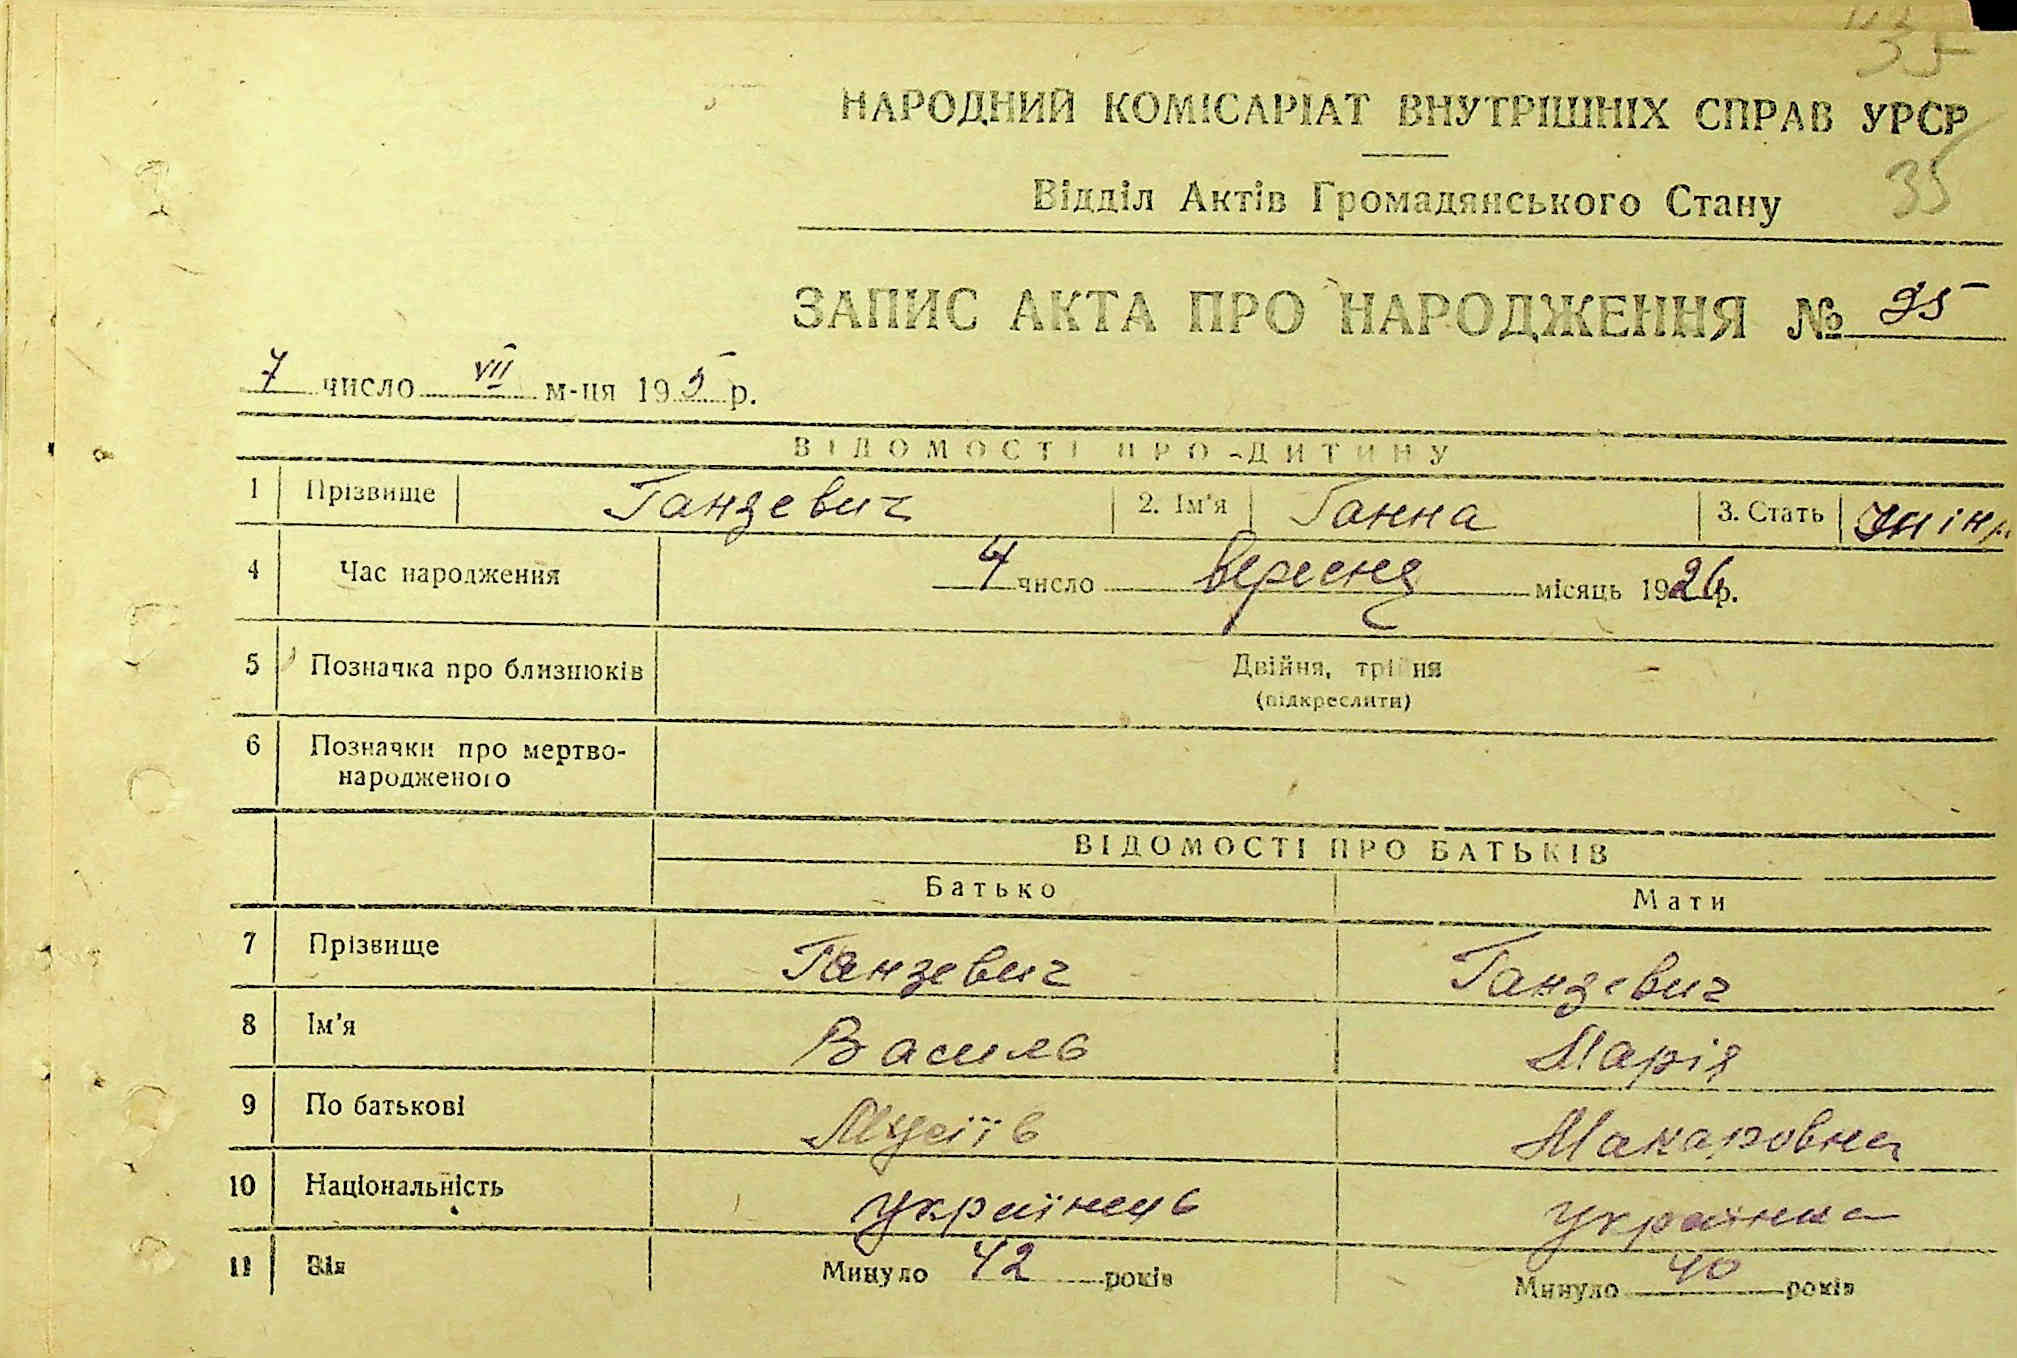 35
НАРОДНИЙ КОМІСАРІАТ ВНУТРІШНІХ СПРАВ УРСР
Відділ Актів Громадянського Стану 35
ЗАПИС АКТА ПРО НАРОДЖЕННЯ №
7 число VII м-ця 195 р.
ВІДОМОСТІ ПРО ДИТИНУ
1 Прізвище Ганзевич 2. Ім'я Ганна 3. Стать
4 Час народження 4 число вересня місяць 1926р.
5 Позначка про близнюків Двійня, трійня
(підкреслити)
6 Позначки про мертво-
народженого
ВІДОМОСТІ ПРО БАТЬКІВ
Батько Мати
7 Прізвище Ганзевич Ганзевич
8 Ім'я Василь Марія
9 По батькові Мусіїв Макаровна
10 Національність українець українка
11 Вік Минуло 42 років Минуло 40 років